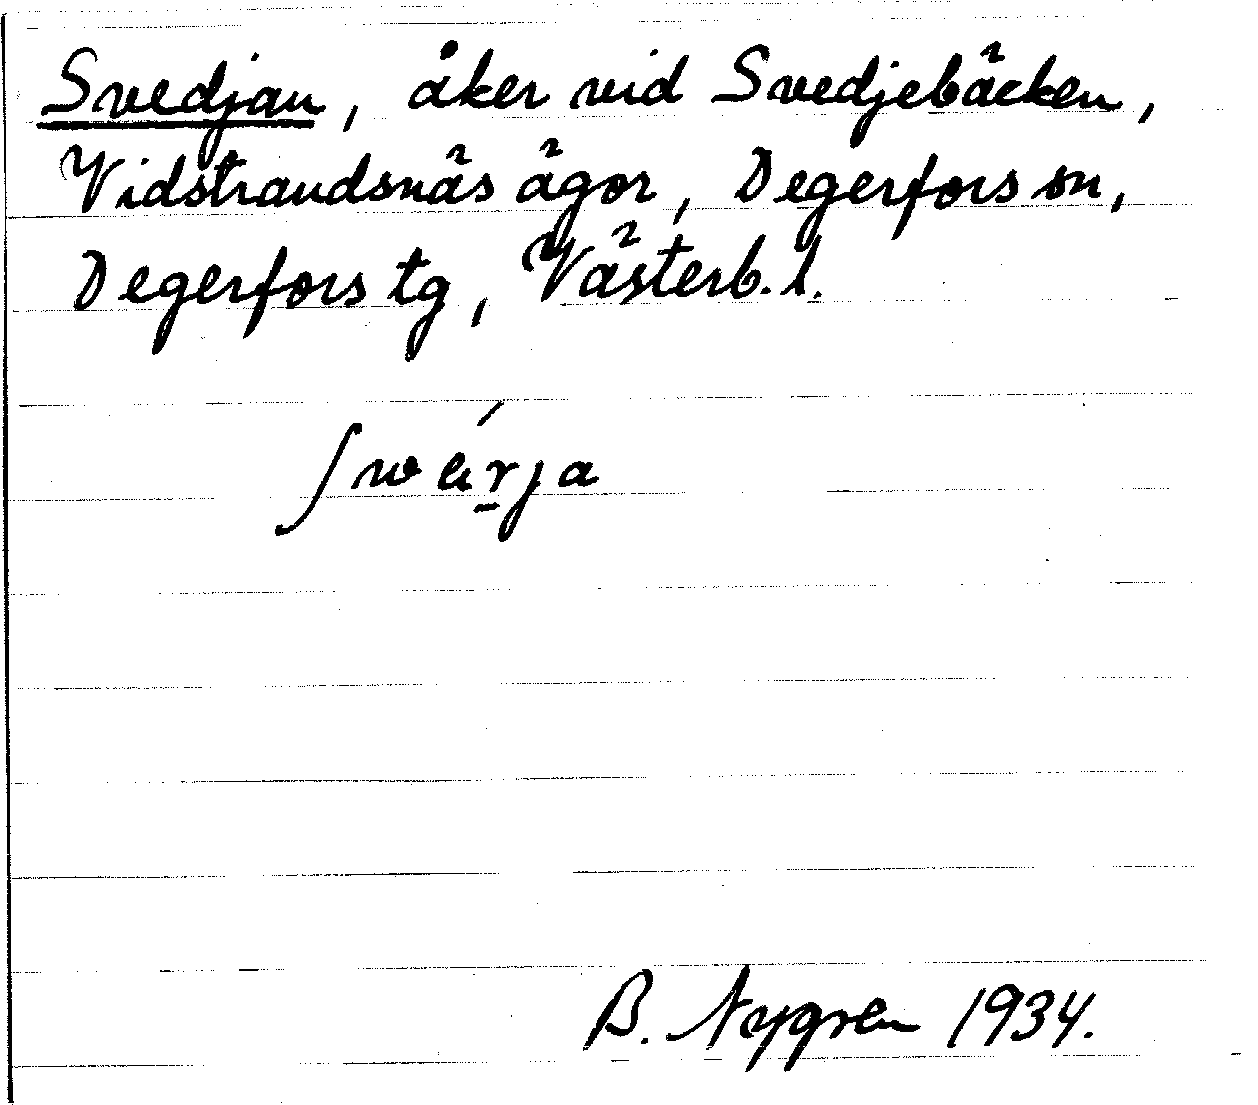 Svedjan, åker vid Svedjebäcken,
Vidstrandsnäs ägor, Degerfors sn,
Degerfors tg, Västerb. l.
B. Nygren 1934.